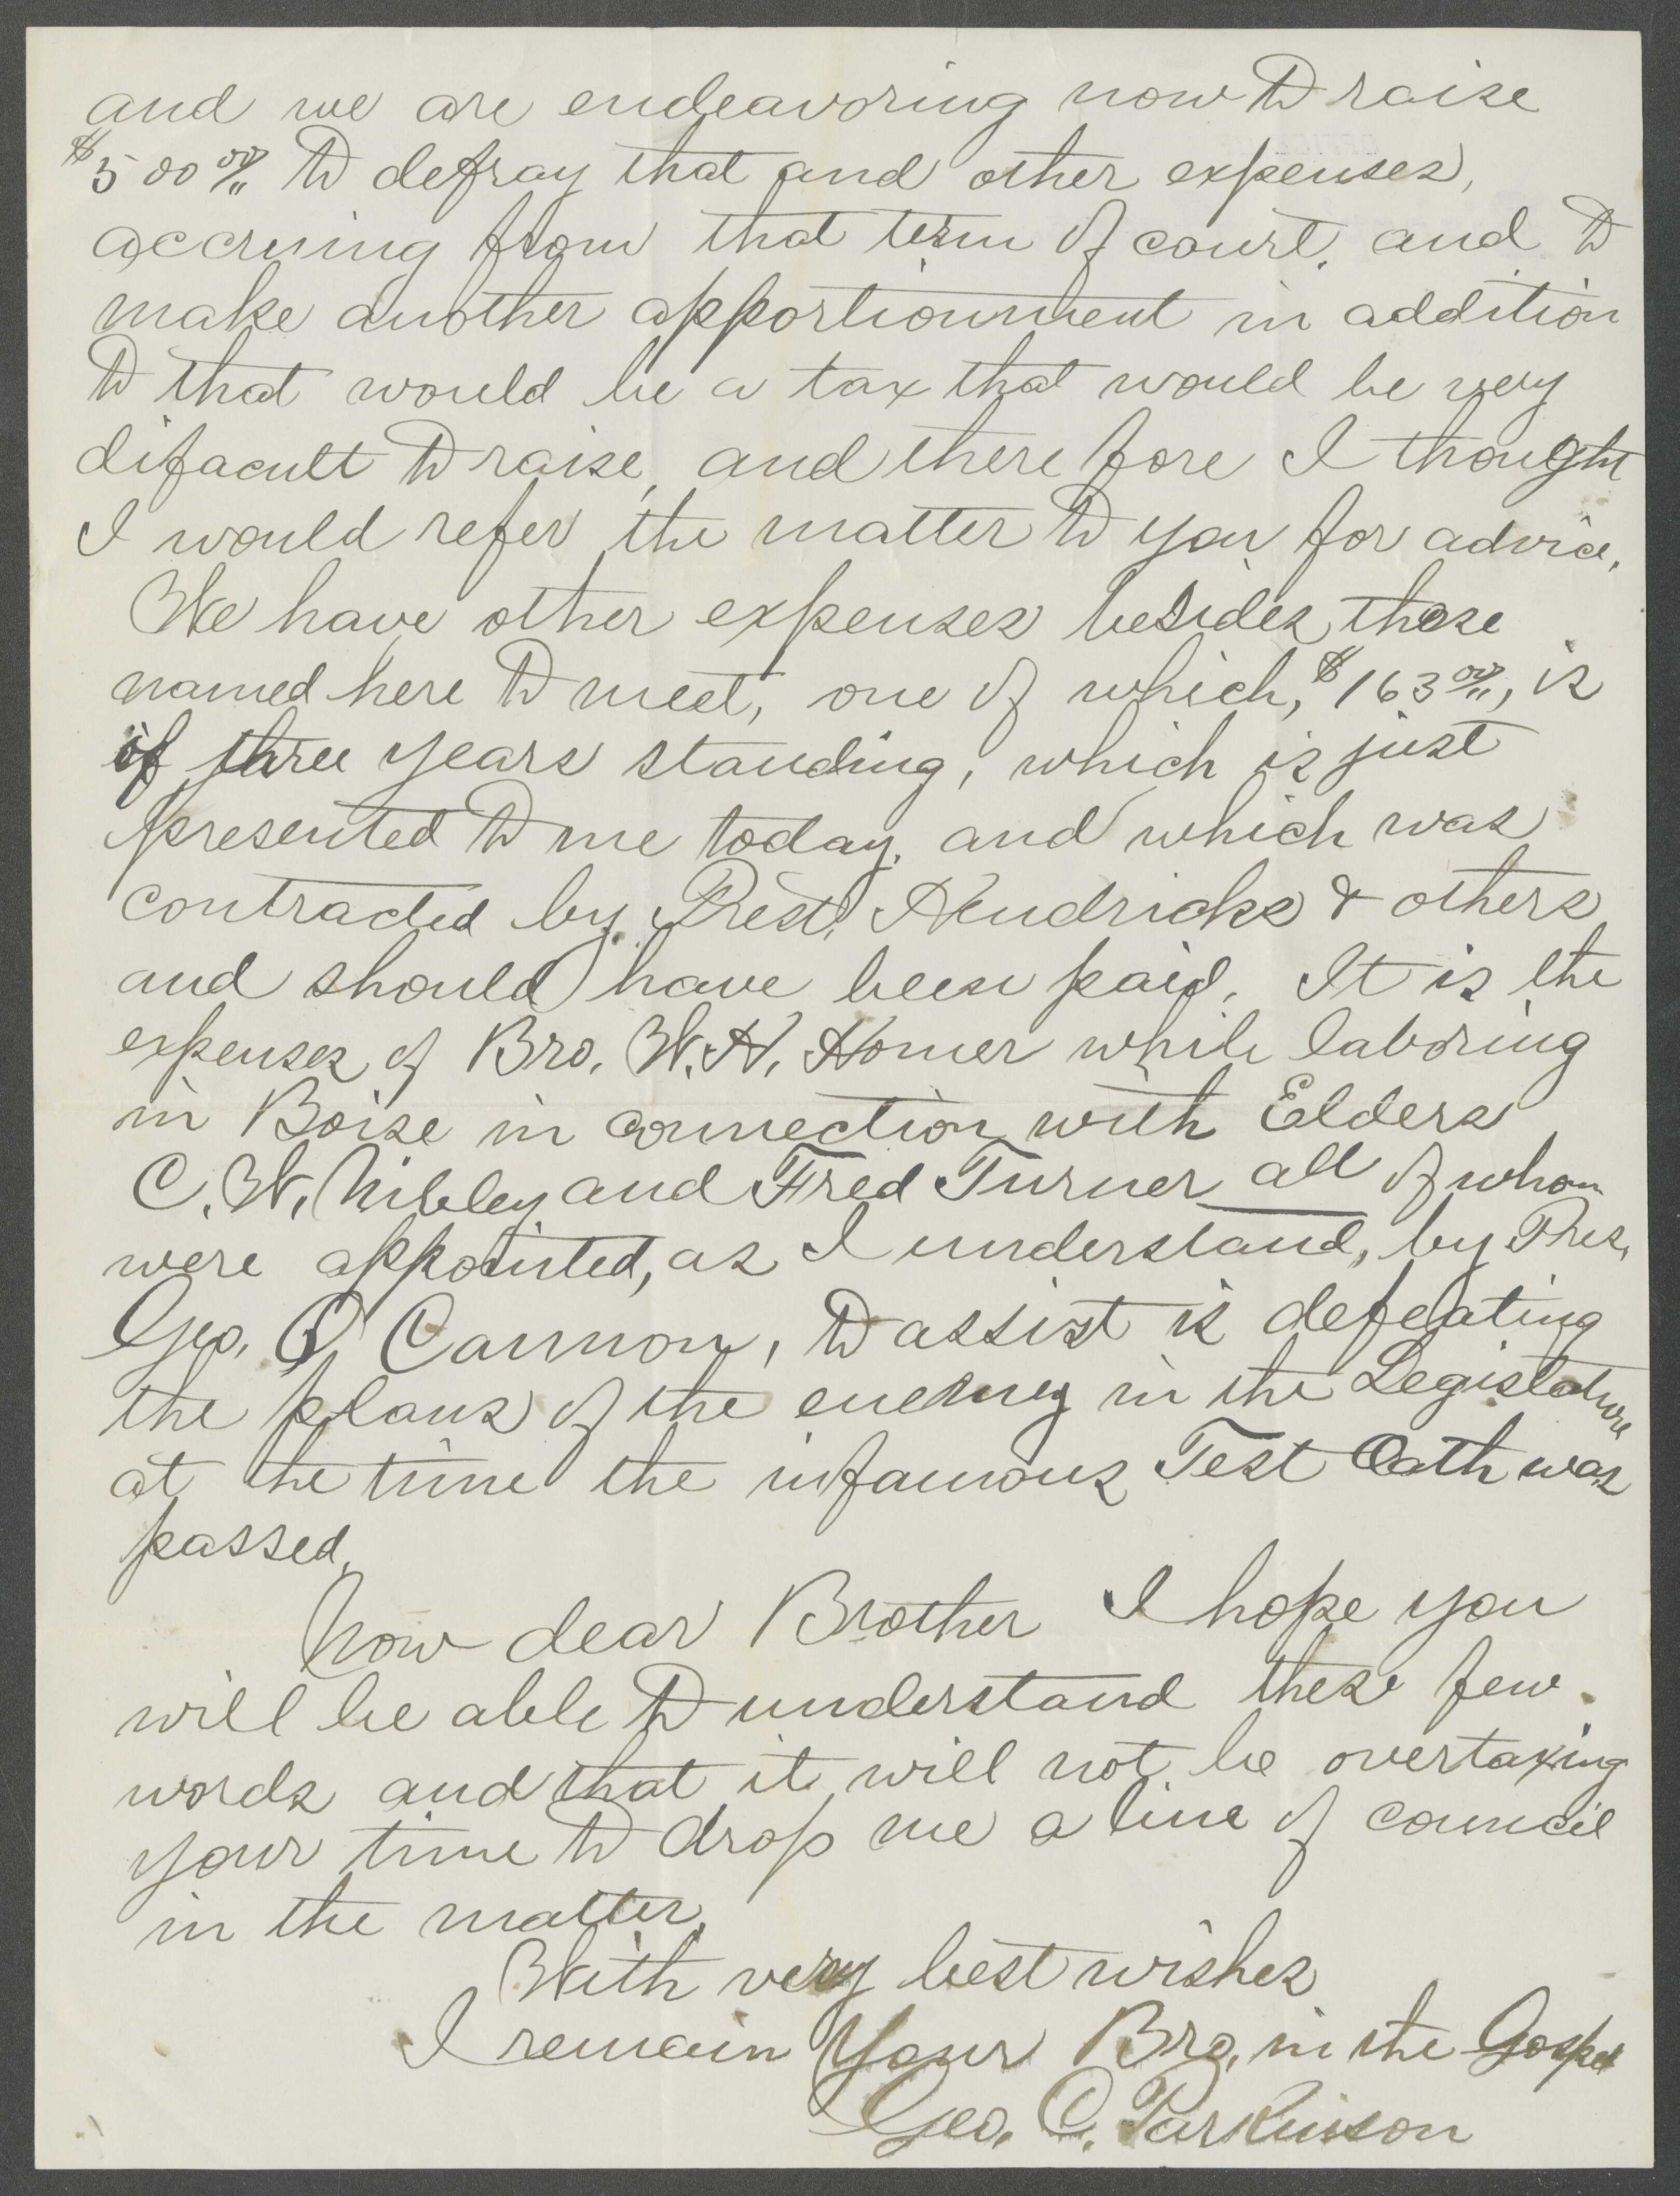 and we are endeavoring now to raise
$500 00/.. to defray that and other expenses,
accruing from that term of court, and to
make another apportionment in addition
to that would be a tax that would be very
difacult to raise, and there fore I thought
I would refer the matter to you for advice.
We have other expenses besides those
named here to meet, one of which, $163 00/.., is
of three years standing, which is just
presented to me today, and which was
contracted by Prest. Hendricks & others
and should have been paid. It is the
expenses of Bro. W. H. Homer while laboring
in Boise in connection with Elders
C. W. Nibley and Fred Turner all of whom
were appointed, as I understand, by Pres.
Geo. Q Cannon, to assist is defeating
the plans of the enemy in the Legislature
at the time the infamous Test Oath was
passed.
Now dear Brother I hope you
will be able to understand these few
words and that it will not be overtaxing
your time to drop me a line of council
in the matter.
With very best wishes
I remain Your Bro. in the Gospel
Geo. C. Parkinson